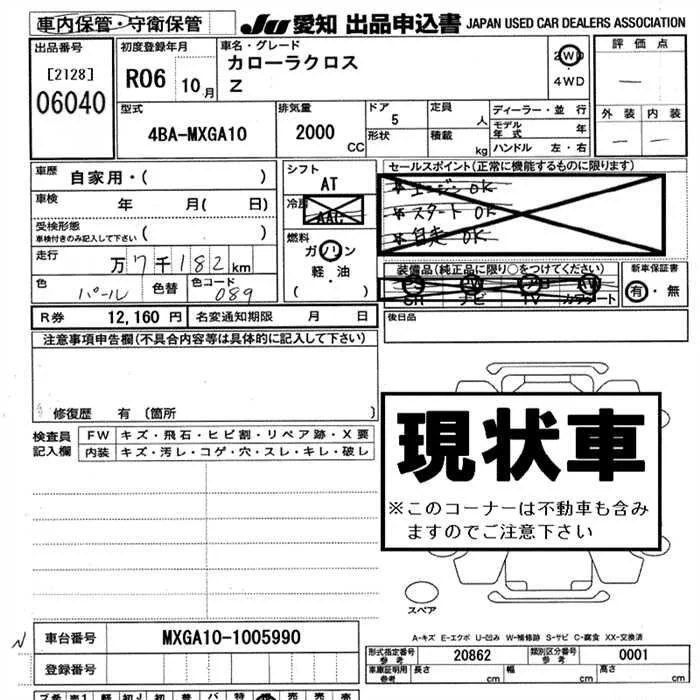 車内保管・守衛保管
JU 愛知 出品申込書 JAPAN USED CAR DEALERS ASSOCIATION
出品番号 [2128] 06040
初度登録年月 R06 10月
車名・グレード カローラクロス Z
2WD 4WD
評価点 —
外装 内装 — —
型式 4BA-MXGA10
排気量 2000 CC
ドア 5 形状
定員 人 積載 kg
ディーラー・並行
モデル年式 年
ハンドル 左・右
車歴 自家用・( )
車検 年 月( 日)
受検形態 車検付きのみ記入して下さい ( )
走行 万7千182km
色 パール 色替 色コード 089
シフト AT
冷房 AAC
燃料 ガソリン 軽・油 ( )
セールスポイント(正常に機能するものに限ります)
*エンジン OK
*スタート OK
*自走 OK
装備品(純正品に限り○をつけてください)
SR ナビ TV カワシート
新車保証書 有・無
R券 12,160 円 名変通知期限 月 日
後日品
注意事項申告欄(不具合内容等は具体的に記入して下さい)
修復歴 有 〔箇所 〕
検査員記入欄
FW キズ・飛石・ヒビ割・リペア跡・X要
内装 キズ・汚レ・コゲ・穴・スレ・キレ・破レ
現状車
※このコーナーは不動車も含み
ますのでご注意下さい
スペア
A-キズ E-エクボ U-凹み W-補修跡 S-サビ C-腐食 XX-交換済
N 車台番号 MXGA10-1005990
登録番号
形式指定番号 参考 20862 類別区分番号 参考 0001
車車証明用 参考 長さ cm 幅 cm 高さ cm